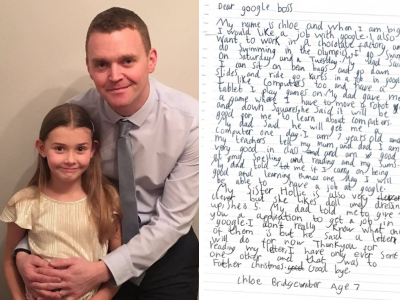 Dear google boss
My name is Chloe and when I am big
I would like a job with google. I also
want to work in a chocolate factory and
do swimming in the olympics. I go swimming
on Saturday and a Wednesday. My dad said
I can sit on bean bags and go down
slides and ride go karts in a job in google.
I like computers too and have a
tablet I play games on. My dad gave me
a game where I have to move a robot up
and down squares, he said it will be
good for me to learn about computers.
My dad said he will get me a
computer one day. I am 7 years old and
my teachers tell my mum and dad I am
very good in class and am good
at my spelling and reading and my sums.
My dad told me if I carry on being
good and learning then one day I will
be able to have a job at google.
My sister Hollie is also very
clever but she likes doll and dressing
up she is 5. My dad told me to give
you a application to get a job in
google. I don't really know what one
of them is but he said a letter
will do for now. Thank you for
reading my letter, I have only ever sent
one other and that was to
Father christmas. Good bye
Chloe Bridgewater Age 7